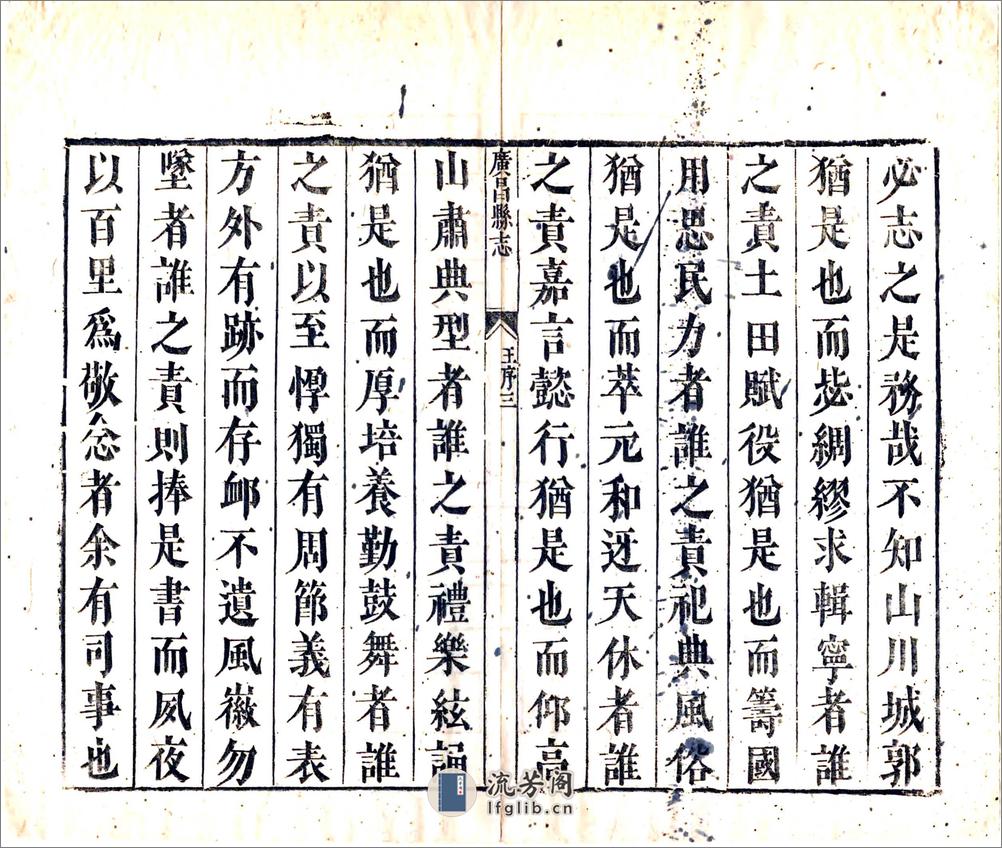 必志之是務哉不知山川城郭
猶是也而毖綢繆求輯寧者誰
之責土田賦役猶是也而籌國
用恩民力者誰之責祀典風俗
猶是也而萃元和迓天休者誰
之責嘉言懿行猶是也而仰高
廣昌縣志 王序 三
山肅典型者誰之責禮樂絃誦
猶是也而厚培養勤鼓舞者誰
之責以至惸獨有周節義有表
方外有跡而存邮不遺風徽勿
墜者誰之責則捧是書而夙夜
以百里爲敬念者余有司事也
流芳阁
lfglib.cn